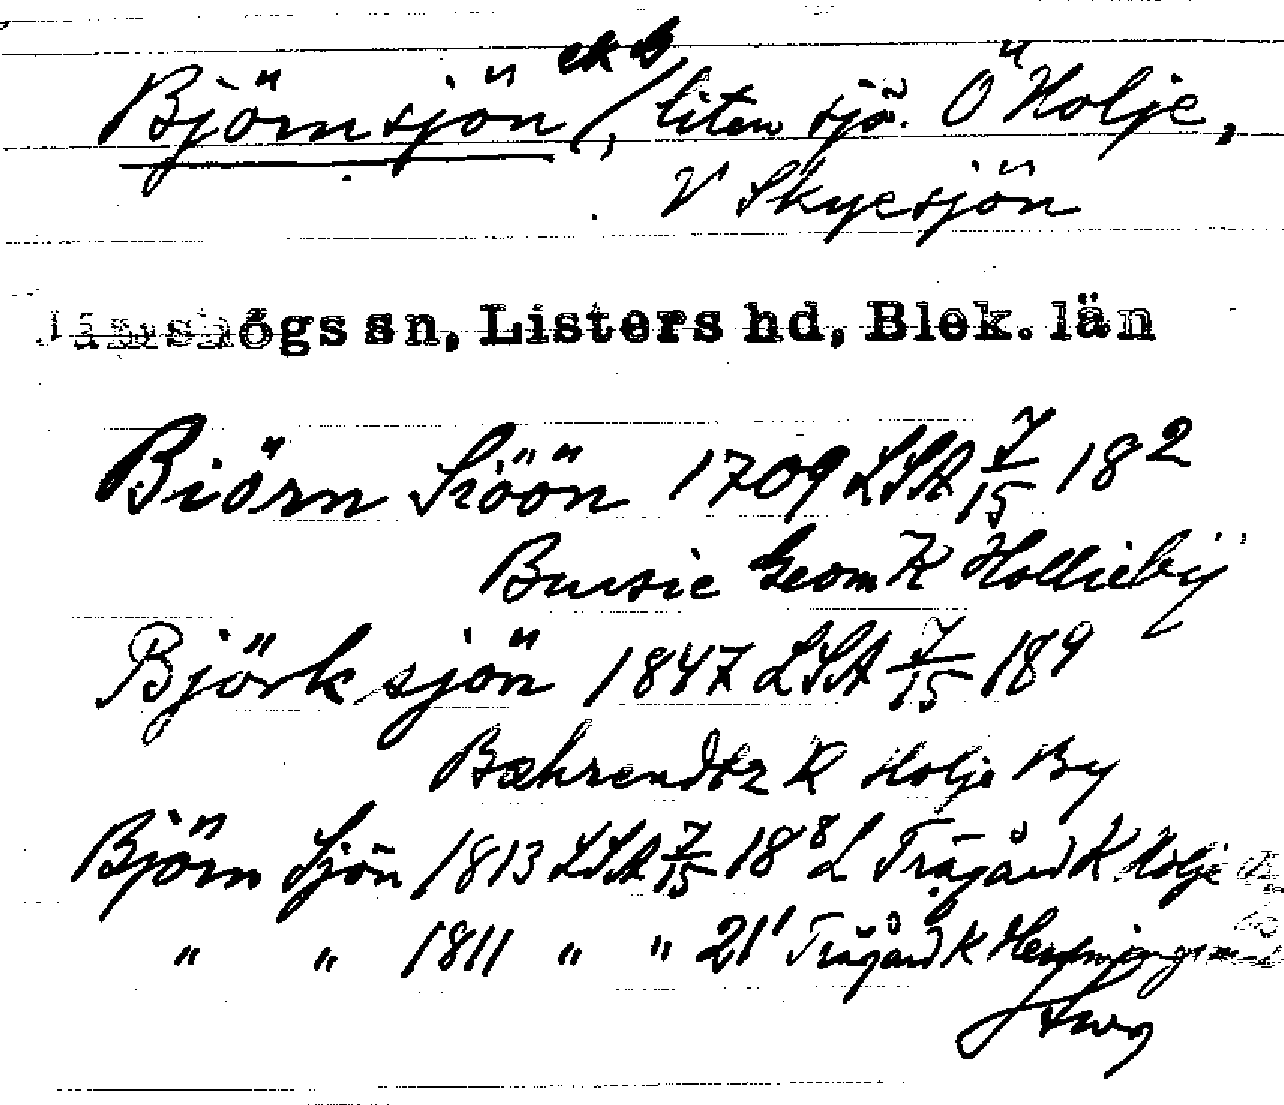 Björnsjön ekb /, liten sjö. Ö Holje,
V Skyesjön
Jämshögs sn, Listers hd, Blek. län
Biörn Siöön 1709 LSA 7/15 18²
Bursie Geom K Hollieby
Björksjön 1847 LSA 7/15 18⁹
Bæhrendtz K Holje By
Björn Sjön 1813 LSA 7/15 18⁸ L Trägård K Holje
" " 1811 " " 21' Trägård K